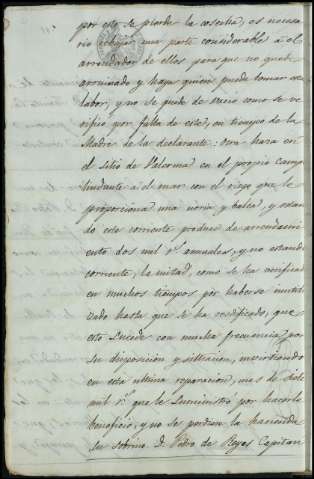 por eso se pierde la cosecha, es necesa-
rio rebajar una parte considerable á el
arrendador de ellos para que no quede
arruinado y haya quien pueda tomar esa
labor, y no se quede de vacio como se ve-
rificó por falta de este, en tiempo de la
Madre de la declarante: otra haza en
el sitio de Palorma en el propio campo
lindante á el mar con el riego que le
proporciona una noria y balsa, y estan-
do este corriente produce de arrendami-
ento dos mil r.s annuales, y no estando
corriente, la mitad, como se ha verificado
en muchos tiempos por haberse inutili-
zado hasta que se ha reedificado, que
esto sucede con mucha frecuencia por
su disposicion y situacion, invirtiendo
en esta ultima reparacion, mas de siete
mil r.s que le suministró por hacerle
beneficio, y no se perdiera la hacienda
su sobrino D. Pedro de Reyes Capitan